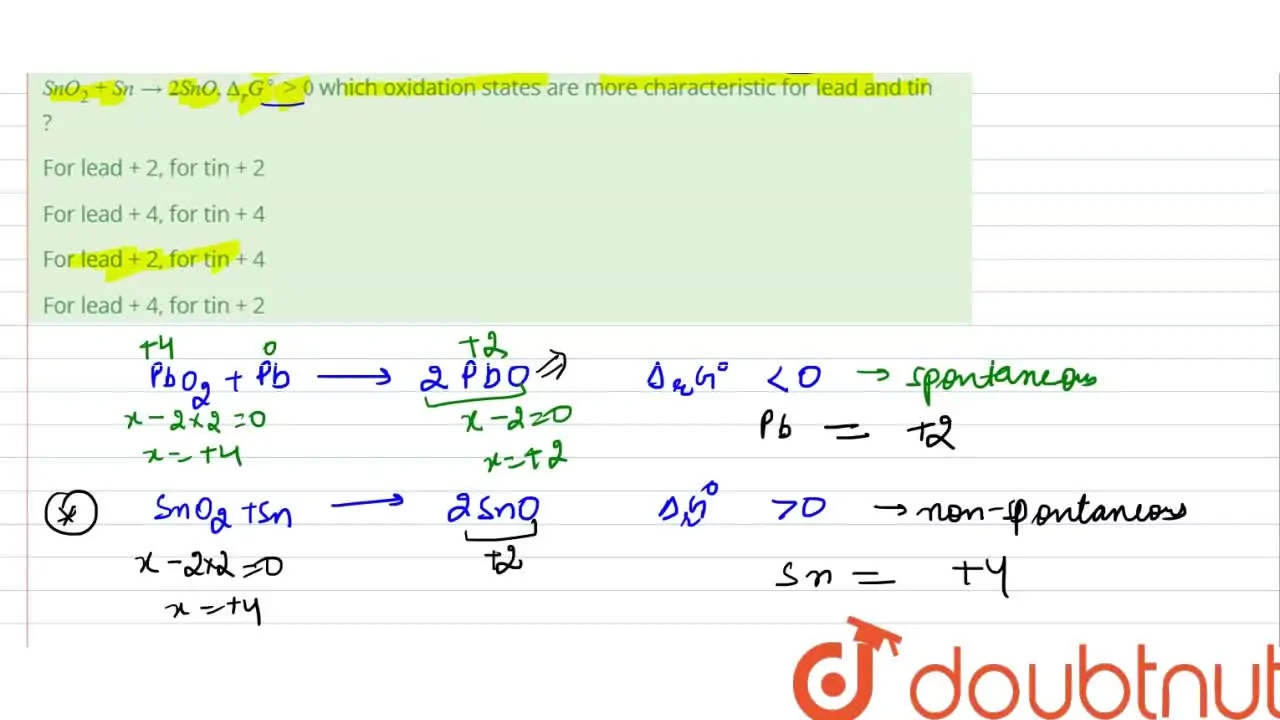 SnO₂ + Sn → 2SnO, ΔᵣG° > 0 which oxidation states are more characteristic for lead and tin
?
For lead + 2, for tin + 2
For lead + 4, for tin + 4
For lead + 2, for tin + 4
For lead + 4, for tin + 2
+4 0 +2
PbO₂ + Pb → 2 PbO ⇒ ΔᵣG° < 0 → spontaneous
x - 2×2 = 0 x - 2 = 0 Pb = +2
x = +4 x = +2
* SnO₂ + Sn → 2 SnO ΔᵣG° > 0 → non-spontaneous
x - 2×2 = 0 +2 Sn = +4
x = +4
doubtnut